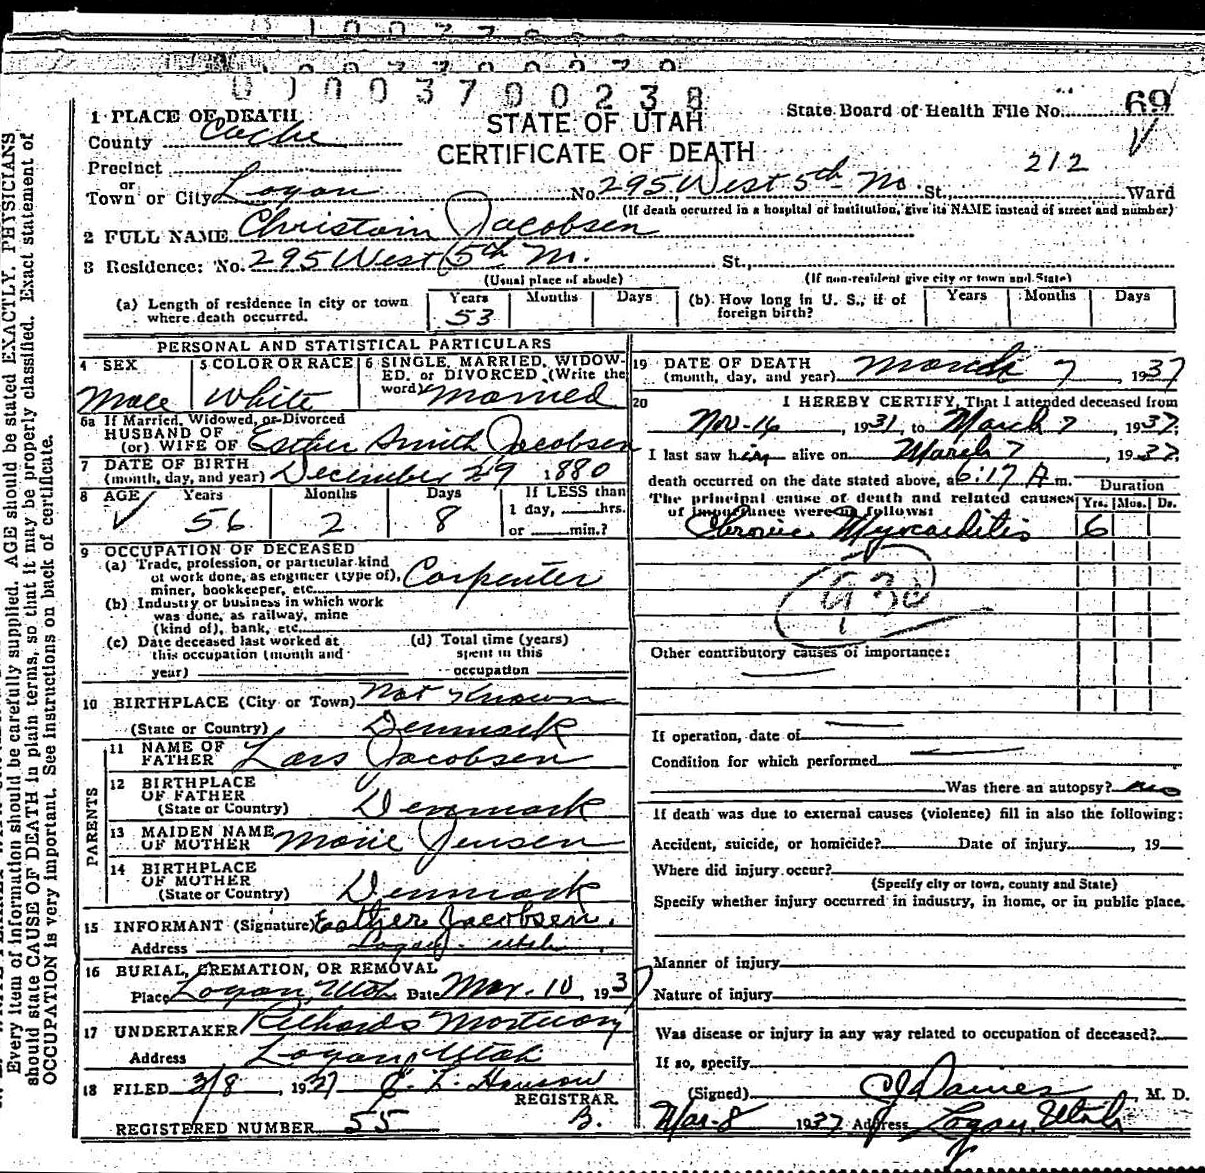 0 1 0 0 3 7 0 0 2 3 8
1 PLACE OF DEATH
State Board of Health File No. 69
County Cache
STATE OF UTAH
CERTIFICATE OF DEATH
212
Precinct
or
Town or City Logan No. 295 West 5th No. St., Ward
(If death occurred in a hospital or institution, give its NAME instead of street and number)
2 FULL NAME Christain Jacobsen
3 Residence: No. 295 West 5th N. St.,
(Usual place of abode) (If non-resident give city or town and State)
(a) Length of residence in city or town where death occurred. Years 53 Months Days
(b) How long in U. S., if of foreign birth? Years Months Days
PERSONAL AND STATISTICAL PARTICULARS
4 SEX Male
5 COLOR OR RACE White
6 SINGLE, MARRIED, WIDOWED, or DIVORCED (Write the word) Married
6a If Married, Widowed, or Divorced
HUSBAND OF
(or) WIFE OF Esther Smith Jacobsen
7 DATE OF BIRTH
(month, day, and year) December 29 1880
8 AGE Years 56 Months 2 Days 8 If LESS than 1 day, hrs. or min.?
9 OCCUPATION OF DECEASED
(a) Trade, profession, or particular kind of work done, as engineer (type of), miner, bookkeeper, etc. Carpenter
(b) Industry or business in which work was done, as railway, mine (kind of), bank, etc.
(c) Date deceased last worked at this occupation (month and year)
(d) Total time (years) spent in this occupation
10 BIRTHPLACE (City or Town) Not Known
(State or Country) Denmark
PARENTS
11 NAME OF FATHER Lars Jacobsen
12 BIRTHPLACE OF FATHER
(State or Country) Denmark
13 MAIDEN NAME OF MOTHER Marie Jensen
14 BIRTHPLACE OF MOTHER
(State or Country) Denmark
15 INFORMANT (Signature) Esther Jacobsen.
Address Logan Utah
16 BURIAL, CREMATION, OR REMOVAL
Place Logan, Utah Date Mar. 10, 1937
17 UNDERTAKER Richards Mortuary
Address Logan, Utah
18 FILED 3/8, 1937
REGISTRAR
REGISTERED NUMBER 55 B.
19 DATE OF DEATH
(month, day, and year) March 7, 1937
20 I HEREBY CERTIFY, That I attended deceased from
Nov-14, 1931, to March 7, 1937.
I last saw him alive on March 7, 1937.
death occurred on the date stated above, at 6:17 A m.
The principal cause of death and related causes of importance were as follows:
Duration
Yrs. Mos. Ds.
Chronic Myocarditis 6
Other contributory causes of importance:
If operation, date of
Condition for which performed
Was there an autopsy? no
If death was due to external causes (violence) fill in also the following:
Accident, suicide, or homicide? Date of injury , 19
Where did injury occur?
(Specify city or town, county and State)
Specify whether injury occurred in industry, in home, or in public place.
Manner of injury
Nature of injury
Was disease or injury in any way related to occupation of deceased?
If so, specify
(Signed) , M. D.
Mar-8 1937 Address Logan, Utah
Every item of information should be carefully supplied. AGE should be stated EXACTLY. PHYSICIANS
should state CAUSE OF DEATH in plain terms, so that it may be properly classified. Exact statement of
OCCUPATION is very important. See instructions on back of certificate.